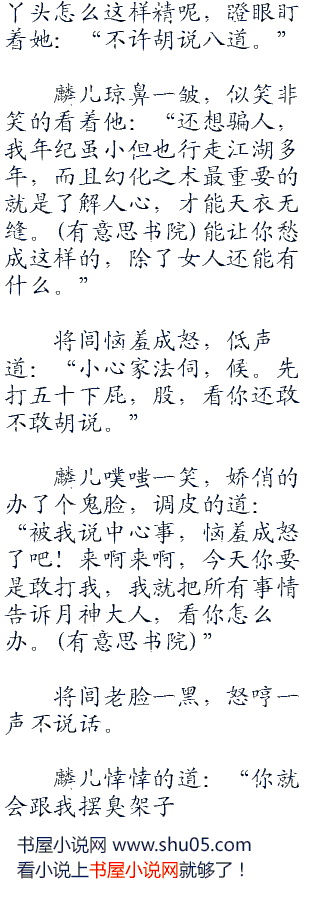 丫头怎么这样精呢，瞪眼盯
着她：“不许胡说八道。”
麟儿琼鼻一皱，似笑非
笑的看着他：“还想骗人，
我年纪虽小但也行走江湖多
年，而且幻化之术最重要的
就是了解人心，才能天衣无
缝。(有意思书院)能让你愁
成这样的，除了女人还能有
什么。”
将闾恼羞成怒，低声
道：“小心家法伺，候。先
打五十下屁，股，看你还敢
不敢胡说。”
麟儿噗嗤一笑，娇俏的
办了个鬼脸，调皮的道：
“被我说中心事，恼羞成怒
了吧！来啊来啊，今天你要
是敢打我，我就把所有事情
告诉月神大人，看你怎么
办。(有意思书院)”
将闾老脸一黑，怒哼一
声不说话。
麟儿悻悻的道：“你就
会跟我摆臭架子
书屋小说网 www.shu05.com
看小说上书屋小说网就够了！